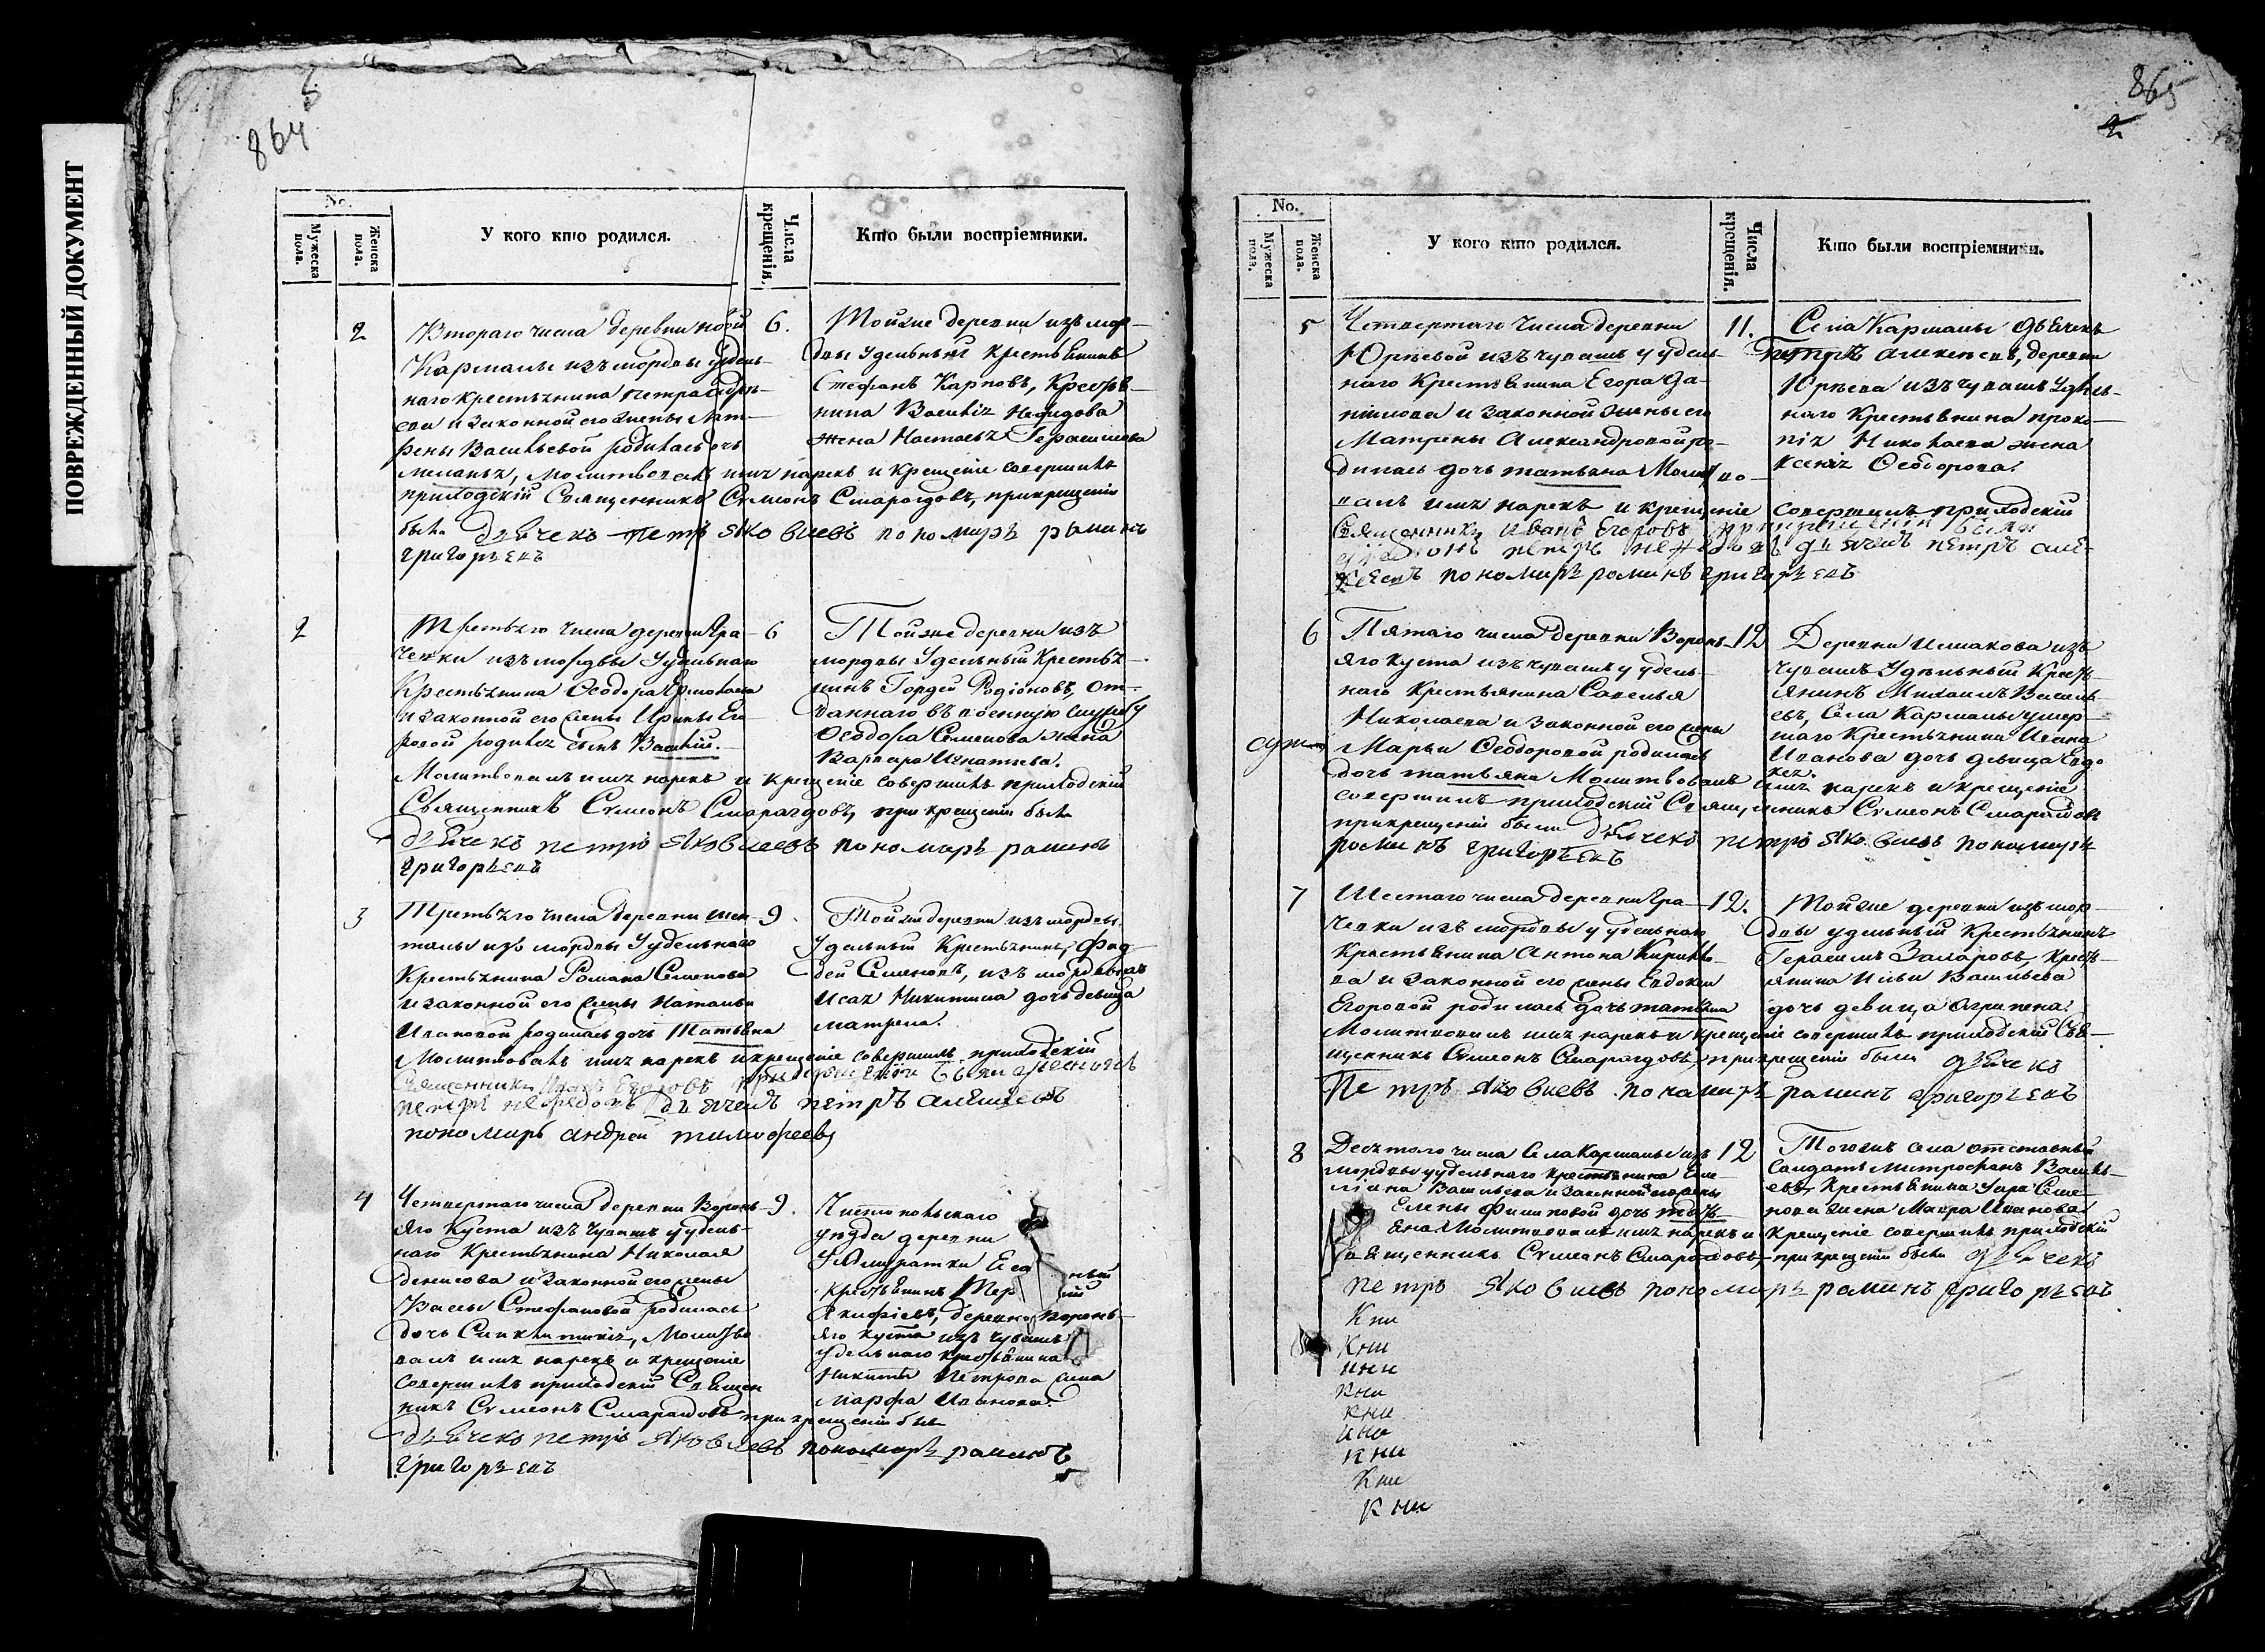 ПОВРЕЖДЕННЫЙ ДОКУМЕНТ
864
No.
Мужеска пола.
Женска пола.
У кого кто родился.
Числа крещенія.
Кто были воспріемники.
2
Втораго числа деревни новой
Кармалы изъ мордвы удель-
наго крестьянина петра
ева и законной его жены Мат-
рены Васильевой родилась дочь
меланья, молитвовалъ имя нарекъ и крещеніе совершилъ
приходскій Священникъ Сѵмеонъ Смарагдовъ, прикрещеніи
были дьячекъ петръ Яковлевъ пономарь раминъ
григорьевъ
6.
Тойже деревни изъ мор-
двы удельный крестьянинъ
Стефанъ Карповъ, крестья-
нина Василія Нефидова
жена Настасья Герасимова
2
Третьяго числа деревни Гра-
чевки изъ мордвы Удельнаго
Крестьянина Ѳеодора Ермолаева
и законной его жены Ирины Его-
ровой родился сынъ Василій.
Молитвовалъ имя нарекъ и крещеніе совершилъ приходскій
Священникъ Сѵмеонъ Смарагдовъ, при крещеніи были
дьячекъ петръ Яковлевъ пономарь раминъ
григорьевъ
6
Тойже деревни изъ
мордвы Удельный Крестья-
нинъ Гордей Родіоновъ, от-
даннаго въ военную службу
Ѳеодора Семенова жена
Варвара Игнатьева.
3
Третьяго числа деревни Шен-
талы изъ мордвы Удельнаго
Крестьянина Романа Семенова
и законной его жены Натальи
Ивановой родилась дочь Татьяна
Молитвовалъ имя нарекъ и крещеніе совершилъ приходскій
Священникъ Иванъ Егоровъ прикрещеніи были диаконъ
петръ нефедовъ дьячекъ петръ алексеевъ
пономарь андрей тимофеевъ
9.
Тойже деревни изъ мордвы
Удельный Крестьянинъ Фад-
дей Семеновъ, изъ мордвы
Исая Никитина дочь девица
матрена.
4
Четвертаго числа деревни Воронь-
яго Куста изъ Чувашъ удель-
наго Крестьянина Николая
денисова и законной его жены
Вассы Стефановой родилась
дочь Синклитикія, Молитво-
валъ имя нарекъ и крещеніе
совершилъ приходскій Священ
никъ Сѵмеонъ Смарагдовъ при крещеніи были
дьячекъ петръ Яковлевъ пономарь раминъ
григорьевъ
9.
Чистопольскаго
уезда деревни
крестьянинъ Тер
деревни воронь-
яго куста изъ чувашъ
удельнаго крестьянина
Никиты Петрова жена
марфа Иванова.
865
2
No.
Мужеска пола.
Женска пола.
У кого кто родился.
Числа крещенія.
Кто были воспріемники.
5
Четвертаго Числа деревни
Юрьевой изъ чувашъ у удель-
наго Крестьянина Егора Да-
нилова и законной жены его
Матрены Александровой ро-
дилась дочь татьяна Молитво-
валъ имя нарекъ и крещеніе совершилъ приходскій
Священникъ Иванъ Егоровъ прикрещеніи были
диаконъ петръ нефедовъ дьячекъ петръ але-
ксеевъ пономарь раминъ григорьевъ
11.
Села Кармалы дьячекъ
петръ алексеевъ, деревни
Юрьева изъ чувашъ удель-
наго Крестьянина проко-
пія Николаева жена
ксенія Ѳеодорова.
6
Пятаго числа деревни Воронь-
яго куста изъ чувашъ у удель-
наго Крестьянина Савелья
Николаева и законной его жены
Марьи Ѳеодоровой родилась
дочь татьяна Молитвовалъ имя нарекъ и крещеніе
совершилъ приходскій Священникъ Сѵмеонъ Смарагдовъ
прикрещеніи были дьячекъ петръ Яковлевъ пономарь
раминъ григорьевъ
12
Деревни Ишакова изъ
чувашъ Удельный Крест-
янинъ Михаилъ Василь-
евъ, Села Кармалы умер-
шаго Крестьянина Ивана
Иванова дочь девица Евдо
кея.
7
Шестаго числа деревни Гра-
чевки изъ мордвы у удельнаго
крестьянина Антона Кирило-
ва и законной его жены Евдокеи
Егоровой родилась дочь татьяна
Молитвовалъ имя нарекъ и крещеніе совершилъ приходскій Свя-
щенникъ Сѵмеонъ Смарагдовъ, прикрещеніи были дьячекъ
Петръ Яковлевъ пономарь раминъ григорьевъ
12.
Тойже деревни изъ мор-
двы удельный крестьянинъ
Герасимъ Захаровъ, крест-
янина Ильи Васильева
дочь девица Агрипена.
8
Десятаго числа Села Кармалы изъ
мордвы удельнаго крестьянина Еме-
ліана Васильева и законной его жены
Елены Филиповой дочь тать-
яна Молитвовалъ имя нарекъ и крещеніе совершилъ приходскій
Священникъ Сѵмеонъ Смарагдовъ, при крещеніи были дьячекъ
петръ Яковлевъ пономарь раминъ григорьевъ
12
Тогожъ села отставный
Салдатъ Митрофанъ Василь-
евъ, Крестьянина Уара Семе-
нова жена Мавра Иванова
Кни
Кни
кни
кни
кни
кни
кни
Кни
Кни